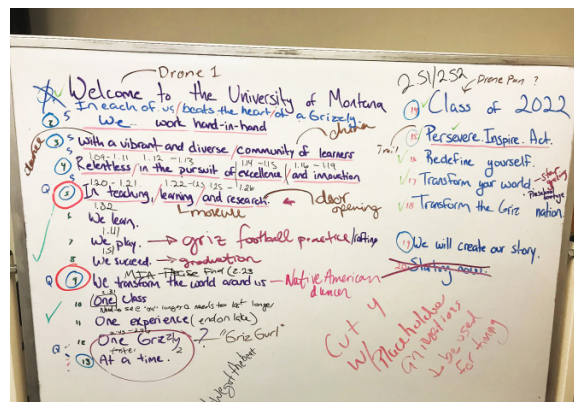 Drone 1
Welcome to the University of Montana
In each of us / beats the heart / of a Grizzly.
2 S We work hand-in-hand
3 S With a vibrant and diverse / community of learners
1.09-1.11 1.12-1.13 1.14-1.15 1.16-1.19
4 Relentless / in the pursuit of excellence / and innovation
1.20-1.21 1.22-1.23 1.25-1.26
Q 5 In teaching, / learning / and research. door opening
1.32 molecule
6 We learn.
1.41
7 We play. → griz football practice / rafting
1.51
8 We succeed. → graduation
2.23
Q 9 We transform the world around us - Native American dancer
2.31
10 (One) class
11 One experience (end on late)
12 One Grizzly ? "Griz Gurl"
Q 13 At a time.
We got the beat
251/252 Drone Pan ?
14 Class of 2022
15 Persevere. Inspire. Act.
16 Redefine yourself.
17 Transform your world.
18 Transform the Griz nation.
19 We will create our story.
Starting now.
Cut 4
w/Placeholder
animations
↓ be used
for timing